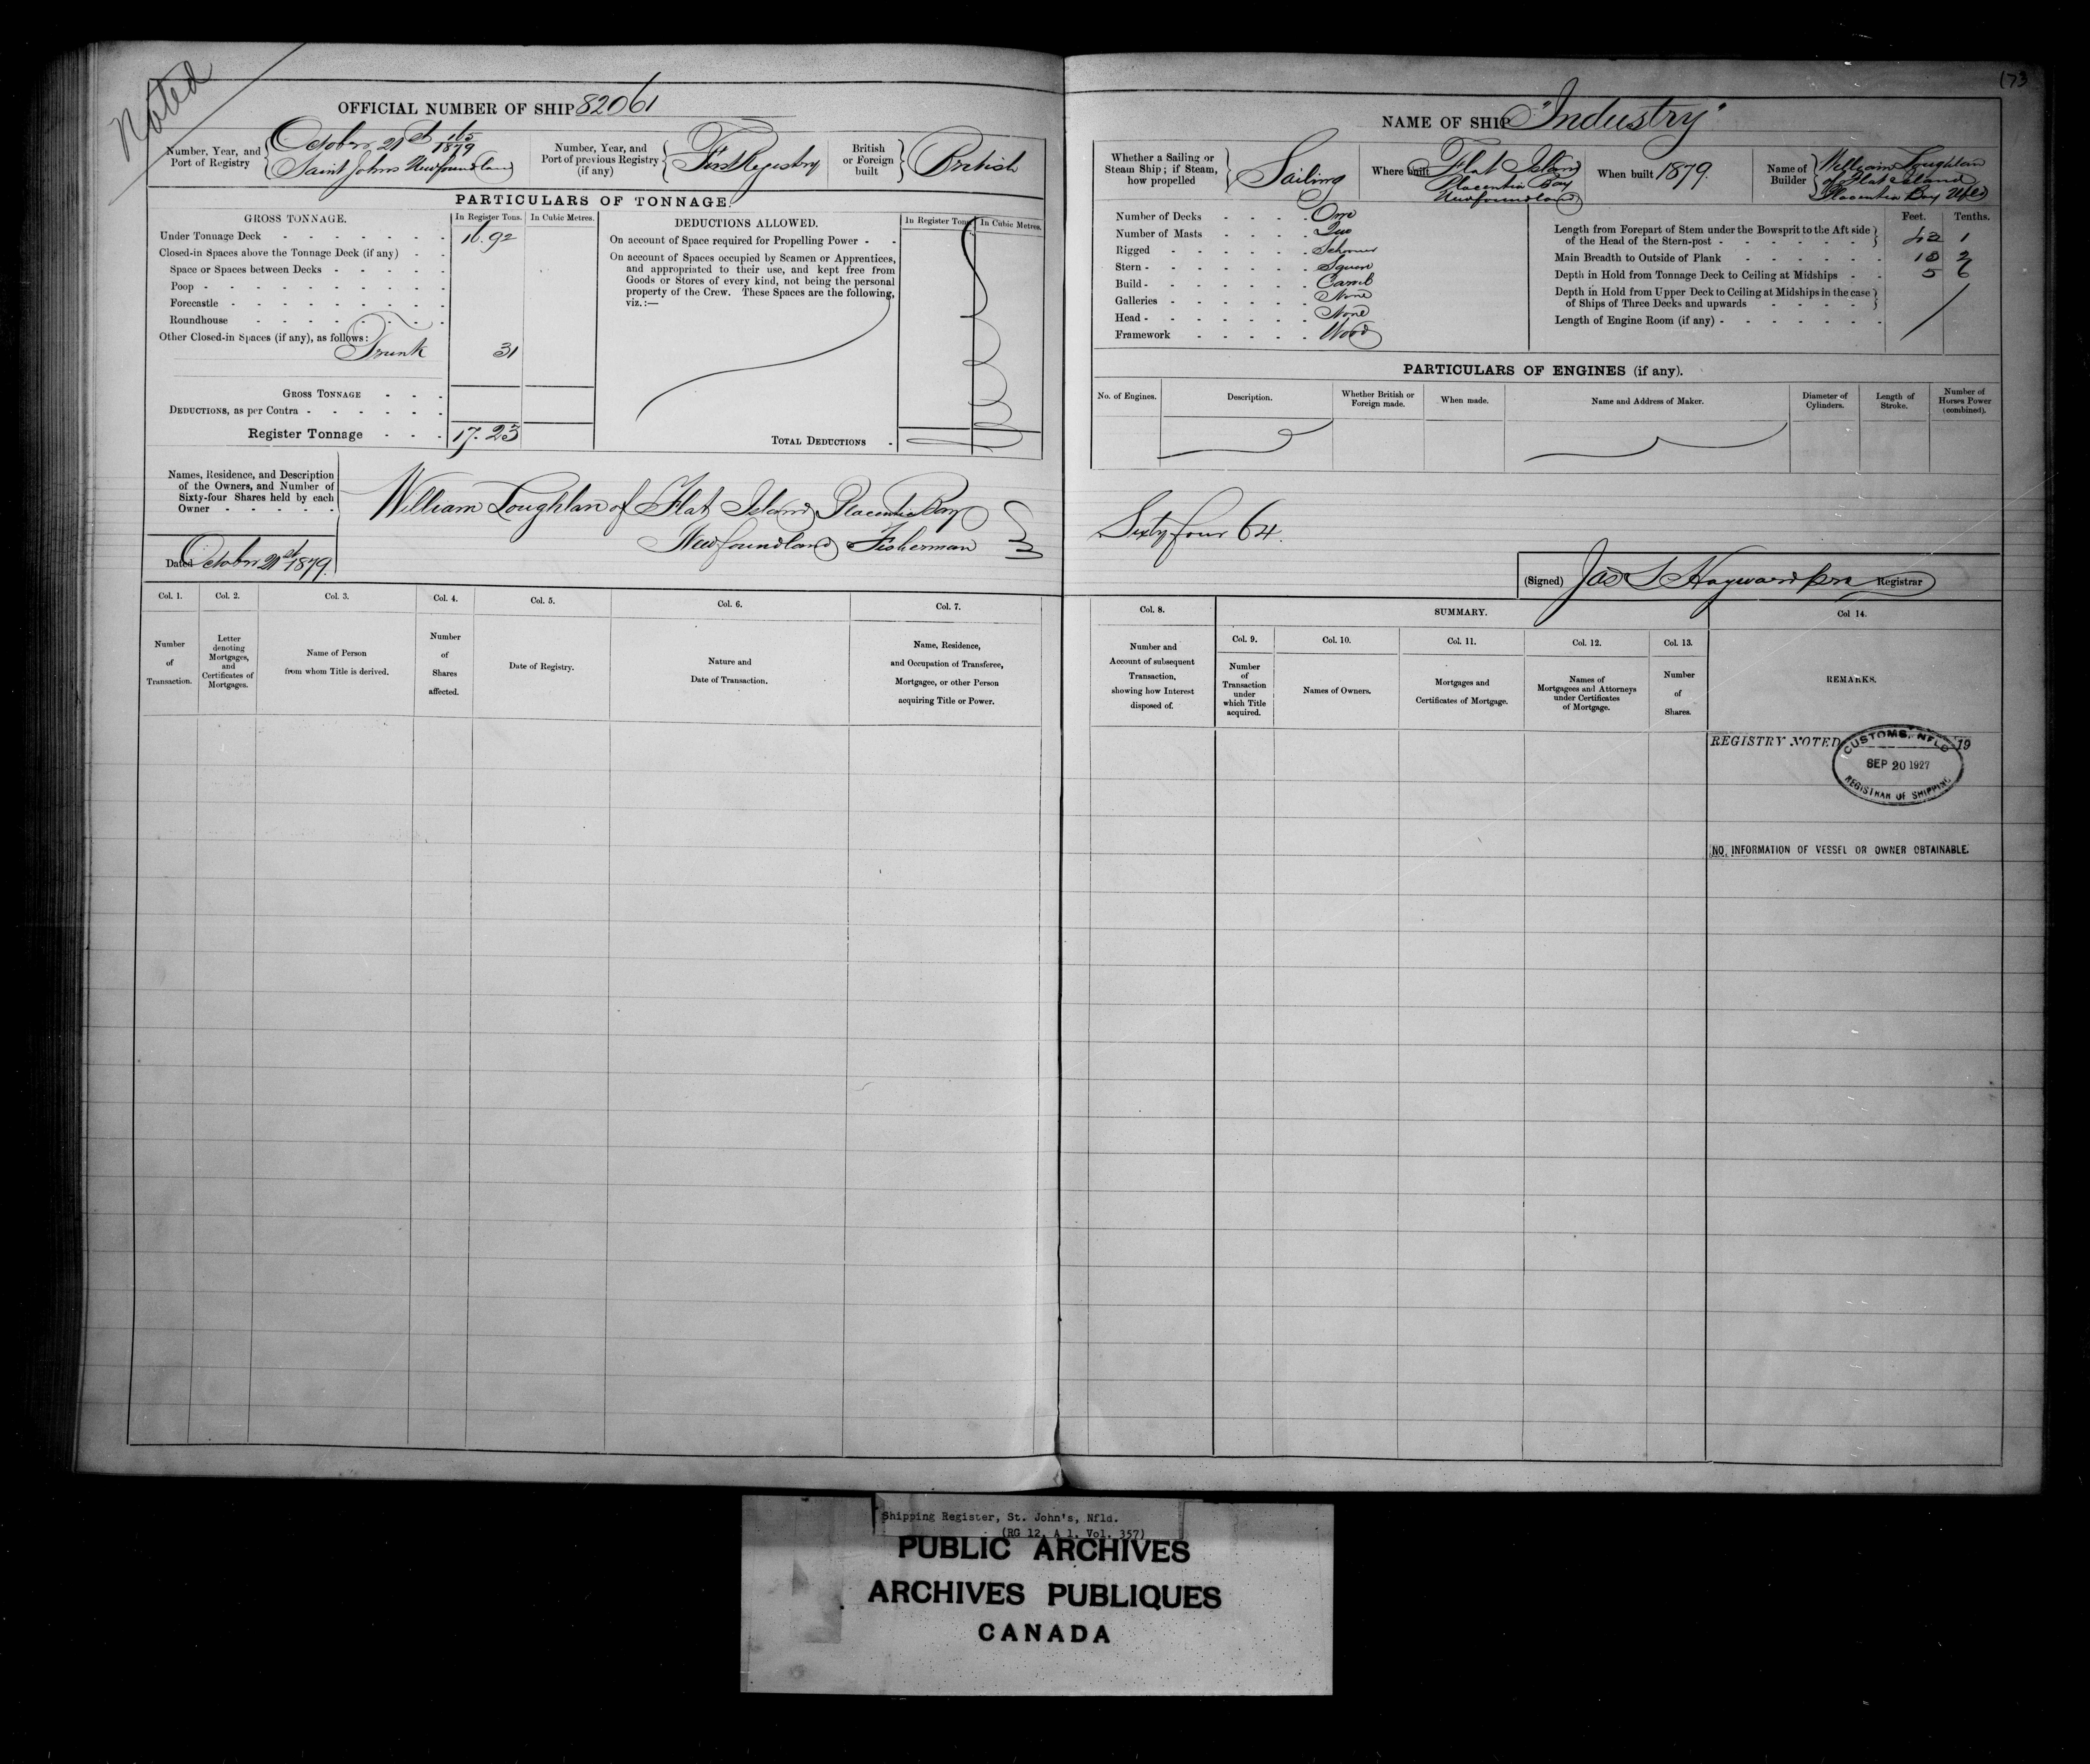 Noted
OFFICIAL NUMBER OF SHIP 82061
Number, Year, and Port of Registry
October 21st 165/1879
Saint Johns Newfoundland
Number, Year, and Port of previous Registry (if any)
First Registry
British or Foreign built
British
PARTICULARS OF TONNAGE.
GROSS TONNAGE.
In Register Tons.
In Cubic Metres.
Under Tonnage Deck 16.92
Closed-in Spaces above the Tonnage Deck (if any)
Space or Spaces between Decks
Poop
Forecastle
Roundhouse
Other Closed-in Spaces (if any), as follows:
Trunk 31
GROSS TONNAGE
DEDUCTIONS, as per Contra
Register Tonnage 17.23
DEDUCTIONS ALLOWED.
In Register Tons.
In Cubic Metres.
On account of Space required for Propelling Power
On account of Spaces occupied by Seamen or Apprentices,
and appropriated to their use, and kept free from
Goods or Stores of every kind, not being the personal
property of the Crew. These Spaces are the following,
viz.:—
TOTAL DEDUCTIONS
Names, Residence, and Description
of the Owners, and Number of
Sixty-four Shares held by each
Owner
William Loughlan of Flat Island Placentia Bay
Newfoundland Fisherman
Dated October 21st 1879.
Col. 1.
Number of Transaction.
Col. 2.
Letter denoting Mortgages, and Certificates of Mortgages.
Col. 3.
Name of Person from whom Title is derived.
Col. 4.
Number of Shares affected.
Col. 5.
Date of Registry.
Col. 6.
Nature and Date of Transaction.
Col. 7.
Name, Residence, and Occupation of Transferee, Mortgagee, or other Person acquiring Title or Power.
173
NAME OF SHIP "Industry"
Whether a Sailing or Steam Ship; if Steam, how propelled
Sailing
Where built
Flat Island
Placentia Bay
Newfoundland
When built 1879.
Name of Builder
William Loughlan
of Flat Island
Placentia Bay Nfld
Number of Decks One
Number of Masts Two
Rigged Schooner
Stern Square
Build Carvel
Galleries None
Head None
Framework Wood
Feet. Tenths.
Length from Forepart of Stem under the Bowsprit to the Aft side
of the Head of the Stern-post 42 1
Main Breadth to Outside of Plank 13 2
Depth in Hold from Tonnage Deck to Ceiling at Midships 5 6
Depth in Hold from Upper Deck to Ceiling at Midships in the case
of Ships of Three Decks and upwards
Length of Engine Room (if any)
PARTICULARS OF ENGINES (if any).
No. of Engines.
Description.
Whether British or Foreign made.
When made.
Name and Address of Maker.
Diameter of Cylinders.
Length of Stroke.
Number of Horses Power (combined).
Sixty four 64.
(Signed) Jas S Hayward Registrar
Col. 8.
Number and Account of subsequent Transaction, showing how Interest disposed of.
SUMMARY.
Col. 9.
Number of Transaction under which Title acquired.
Col. 10.
Names of Owners.
Col. 11.
Mortgages and Certificates of Mortgage.
Col. 12.
Names of Mortgagees and Attorneys under Certificates of Mortgage.
Col. 13.
Number of Shares.
Col 14.
REMARKS.
REGISTRY NOTED 19
CUSTOMS, NFLD
SEP 20 1927
REGISTRAR OF SHIPPING
NO INFORMATION OF VESSEL OR OWNER OBTAINABLE.
Shipping Register, St. John's, Nfld.
(RG 12, A 1, Vol. 357)
PUBLIC ARCHIVES
ARCHIVES PUBLIQUES
CANADA